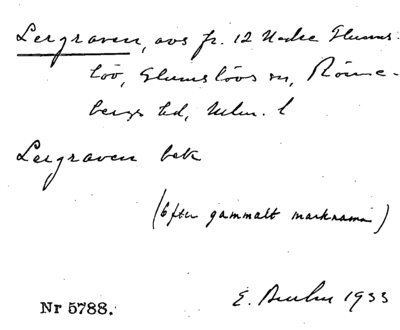 Lergraven, avs fr. 12 Nedre Glums-
löv, Glumslövs sn, Rönne-
bergs hd, Mlm. l
Lergraven bet.
(Efter gammalt marknamn)
E. 1933
Nr 5788.